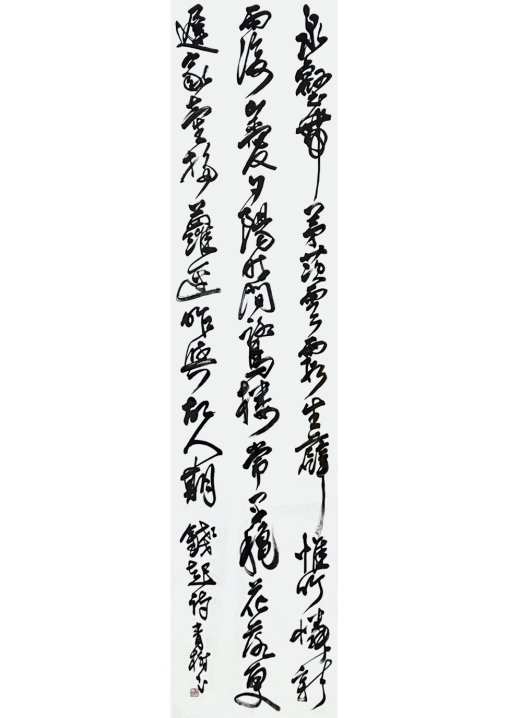 泉壑帶茅茨雲霞生薜帷竹憐新
雨後山愛夕陽時閒鷺棲常早秋花落更
遲家童掃蘿逕昨與故人期 錢起詩 青樹书